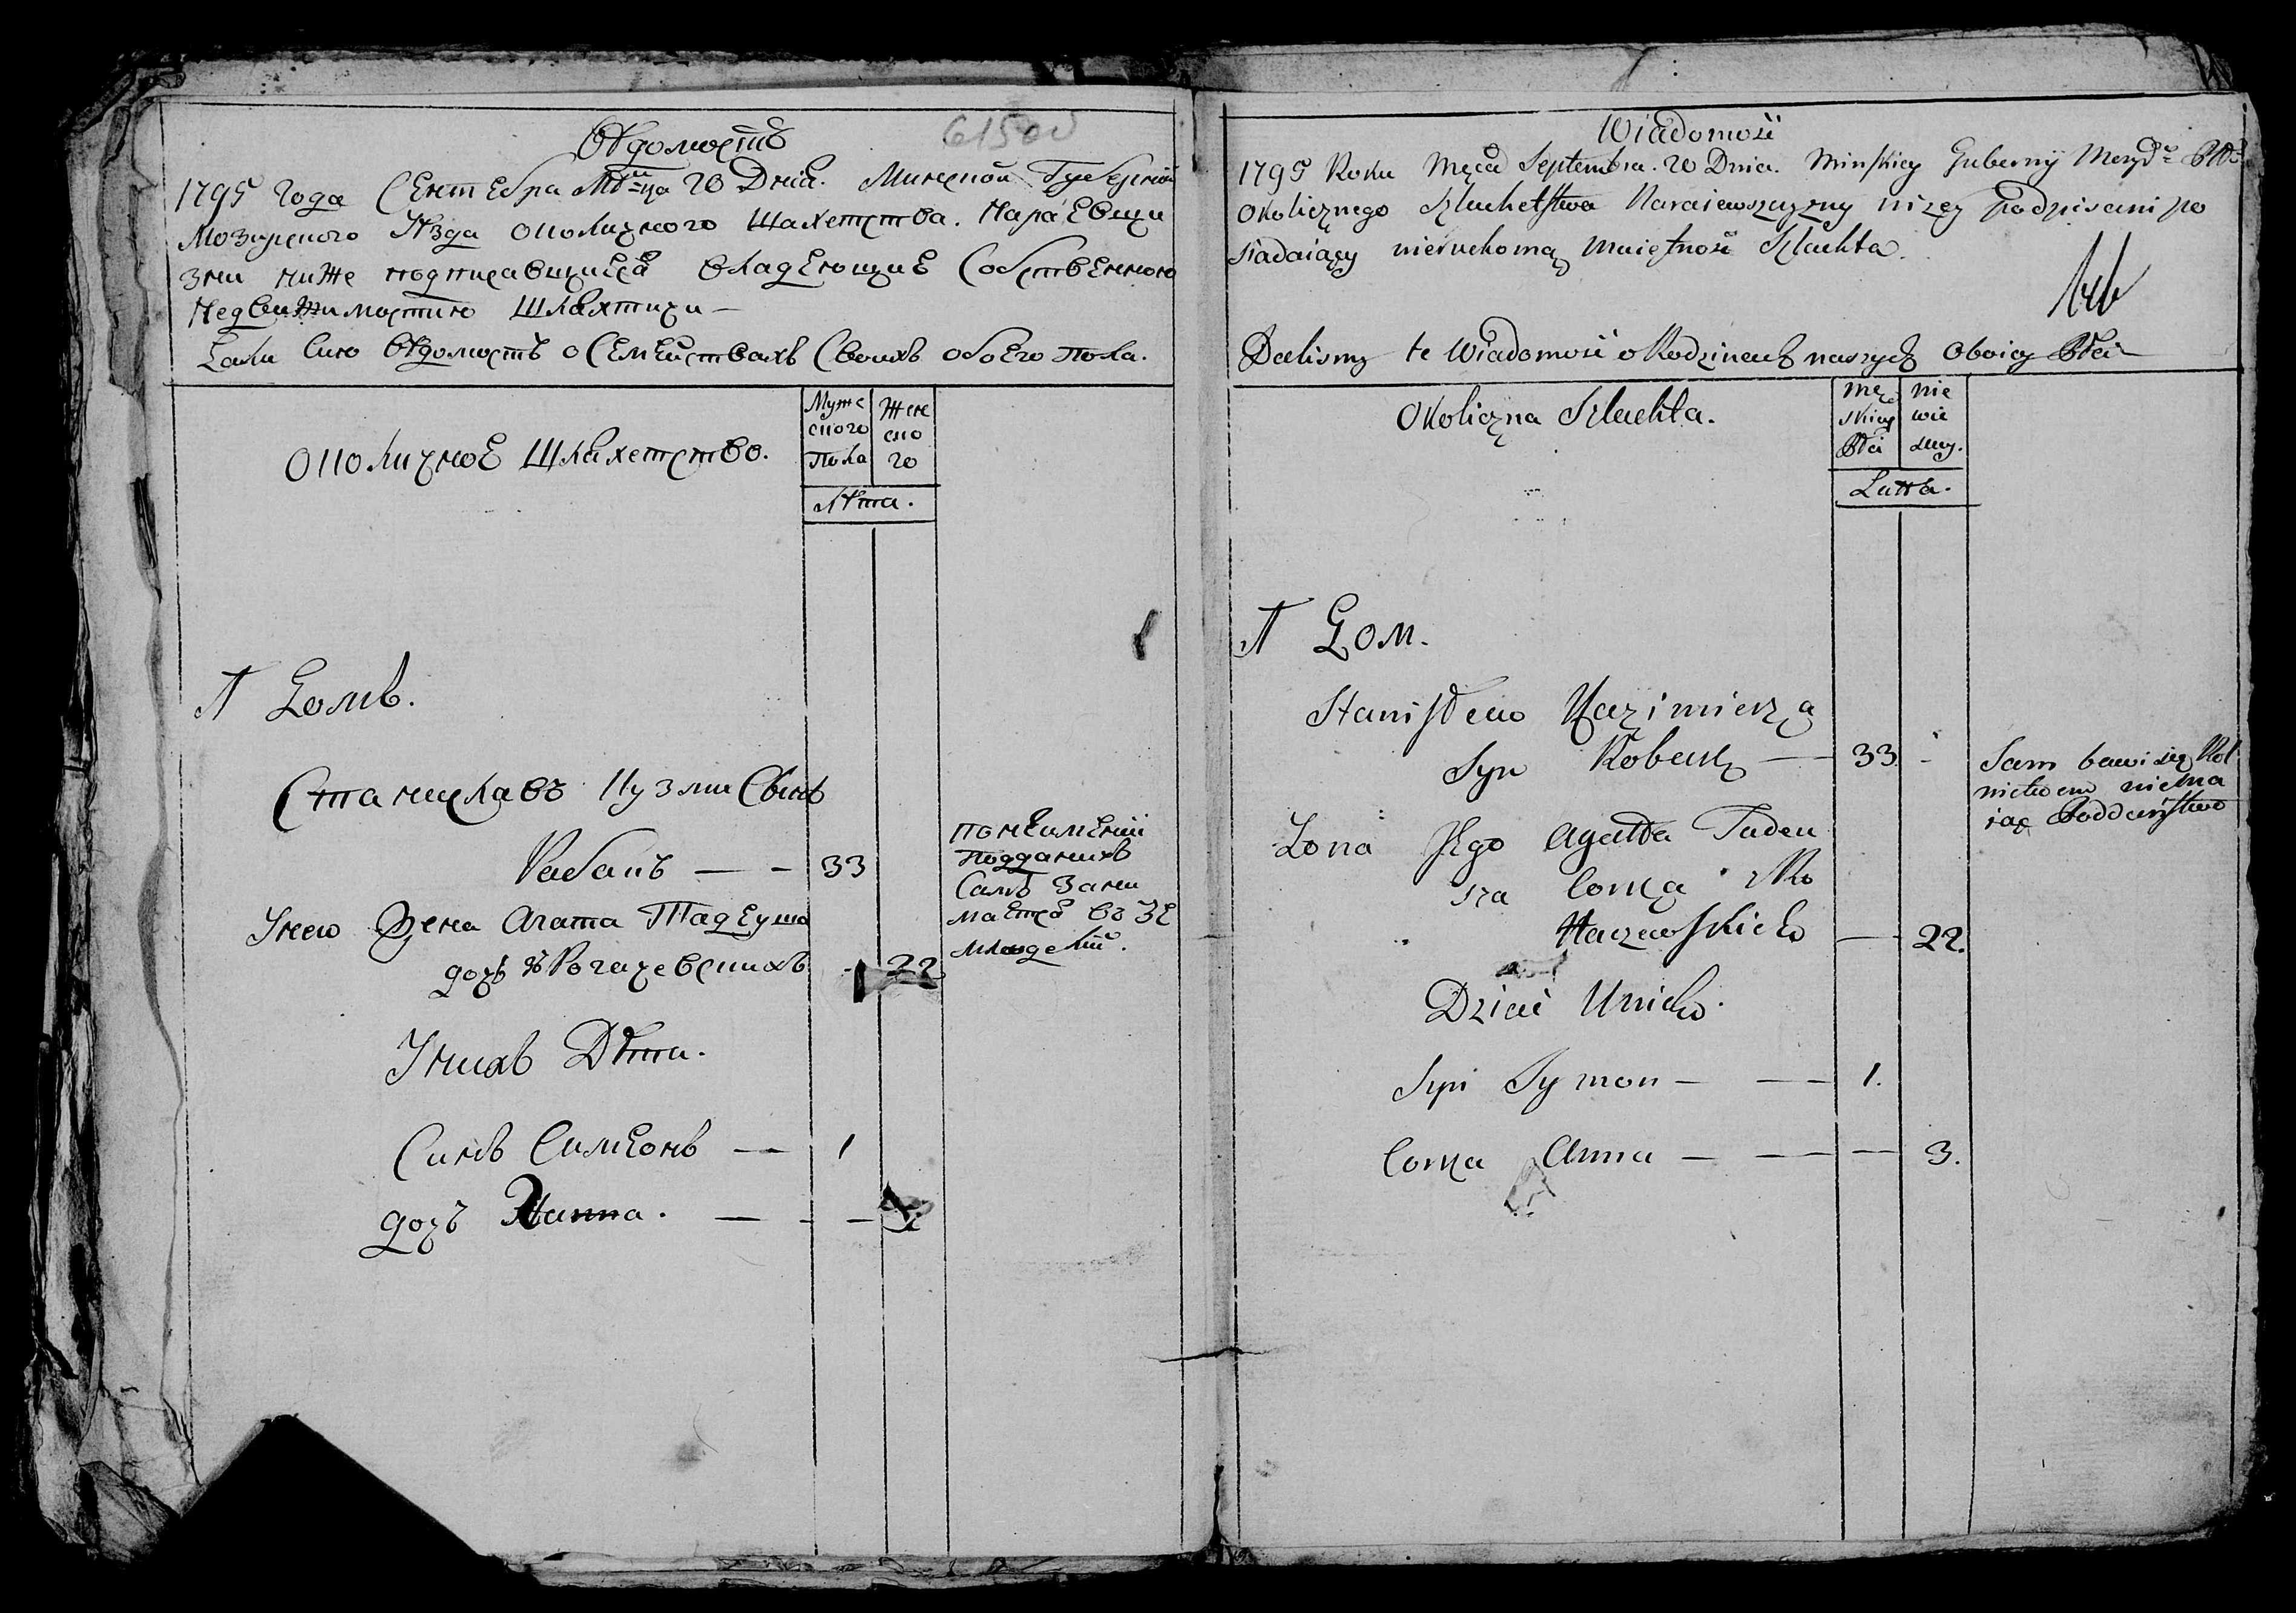 Вѣдомость
1795 Года Сентебра Мѣсца 20 Дня. Минской Губерніи
Мозирского Уѣзда околичного Шляхетства. Караевщи
зни ниже подписавщиеся владеющие Собственною
Недвижимостию Шляхтичи —
Дали Сию Вѣдомость о Семействахъ Своихъ обоего пола.
околичное Шляхетство.
Муже
ского
Пола
Жен
ско
го
Лѣта.
1 Домъ.
Станиславъ Кузми Синъ
Рабанъ — — 33
понеимении
подданихъ
Самъ Зани
маетса въ Зе
мледелии.
Эного Жена Агата Тадеуша
дочь Рогачевскихъ — 22
Энихъ Дѣти.
Синъ Симеонъ — 1
дочь Анна. — — —
Wiadomość
1795 Roku Mca Septembra. 20 Dnia. Minskiey Gubernij Mozyr
Okolicznego Szlachetstwa Karaiewszczyzny niżey Podpisani po
siadaiący nieruchomą Maiętność Szlachta.
Daliśmy te Wiadomość o Rodzinach naszych Oboiey Płci
Okoliczna Szlachta.
Męz
skiey
Płci
nie
wie
sciey.
Latta.
1 Дом.
Stanisław Kazimierza
Syn Robach — 33 -
Sam bawi się Rol
nictwem niema
iąc Poddaństwo
Żona Jego Agatta Tadeu
sza Corka Ro
haczewskich — 22.
Dzieci Unich.
Syn Symon — — 1.
Corka Anna — — — 3.